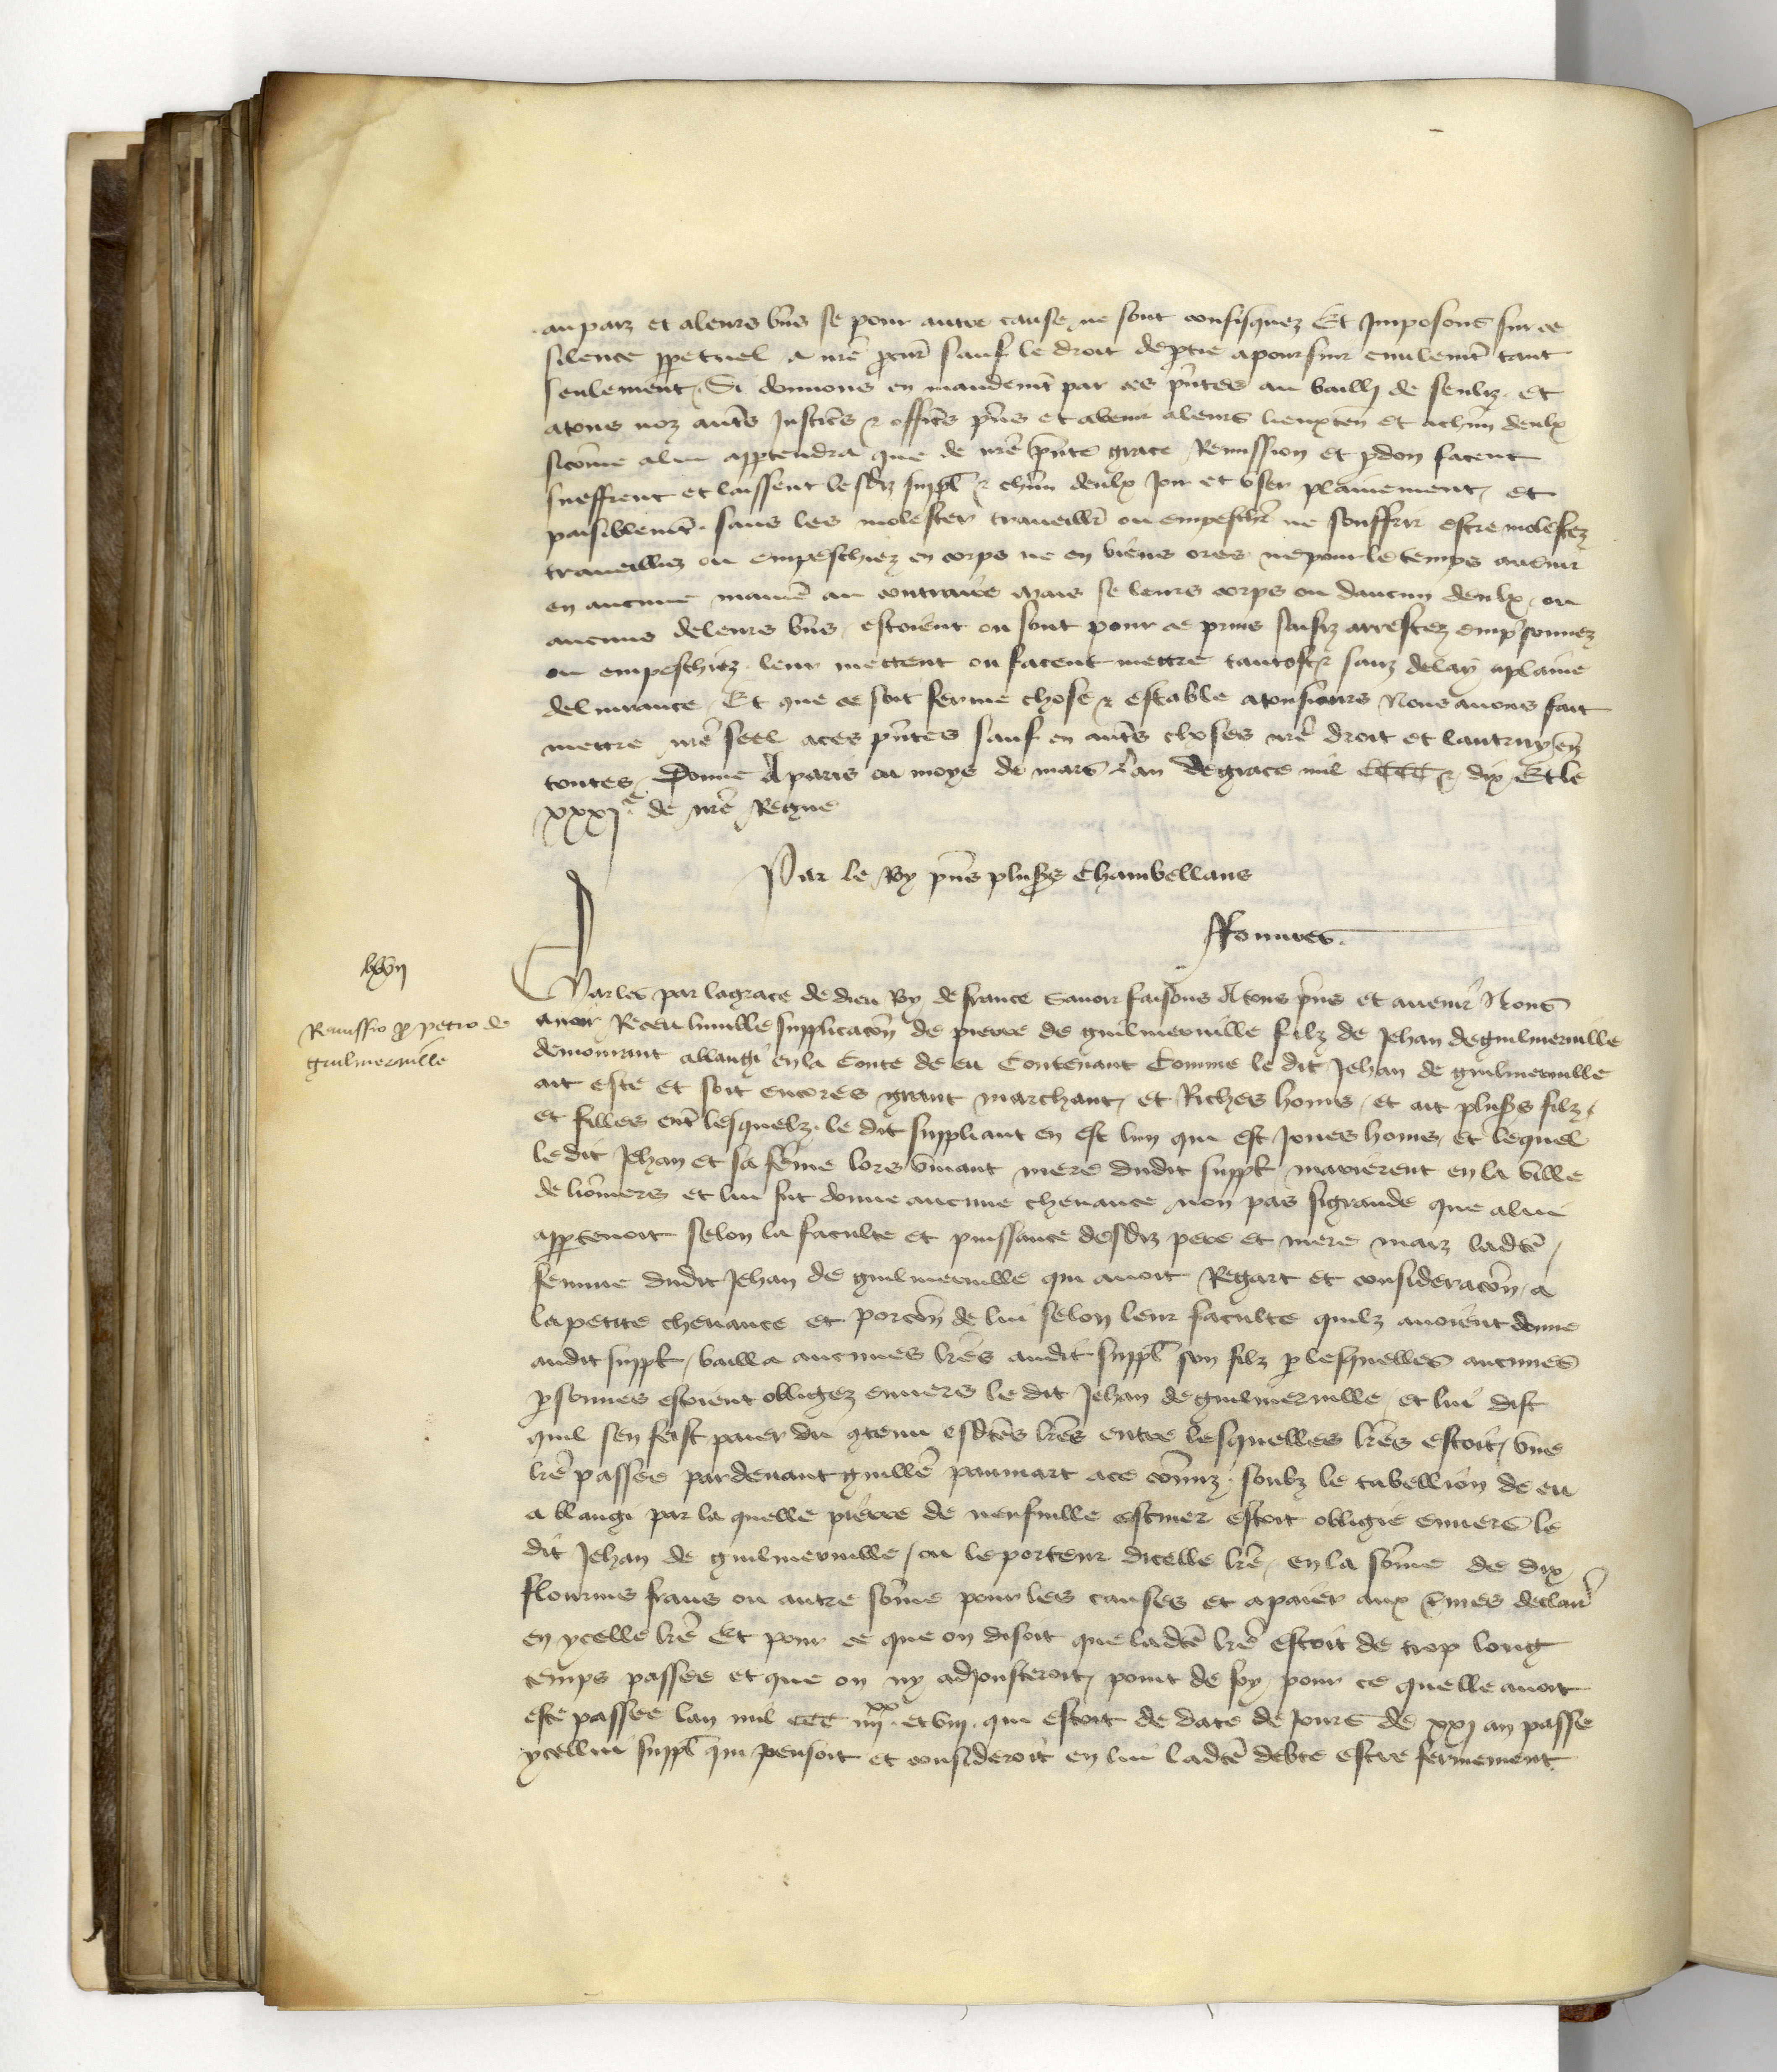 au parz et a leurs bn̄s se pour autre cause ne sont confisquez Et Imposons sur ce
silence ꝑpetuel a nr̄e ꝓcur̄ sauf le droit de ꝑtie a poursuir ciuilemt̄ tant
seulement Si donnons en mandemt̄ par ces pn̄tes au bailli de senliz et
a tous noz aut̄s Justic̄s & offic̄s pn̄s et auenir a leurs lieuxten̄ et a chūn deulx
sicom̄e a lui appꝑtendra que de nr̄e pn̄te grace Remission et ꝑdon facent
sueffrent et laissent lesdiz suppl̄ & chūn deulx Joir et vser plainement et
paisiblemt̄ sans les molester trauaillr̄ ou empeschr̄ ne souffrir estre molestez
trauaillez ou empeschiez en corps ne en biens ores ne pour le temps auenir
en aucune manier̄ au contraire Mais se leurs corps ou daucun deulx ou
aucuns de leurs bn̄s estoient ou sont pour ce prins saisiz arrestez emp̄sonnez
ou empeschiez leur mettent ou facent mettre tantost & sanz delay a plaine
deliurance Et que ce soit ferme chose & estable a tousiours Nous auons fait
mettre nr̄e seel a ces pn̄tes sauf en aut̄s choses nr̄e droit et lautruy en
toutes Donne A paris ou moys de mars lan de grace mil CCCC & dix Et le
xxxj.e de nr̄e Regne
Par le Roy pn̄s plusr̄s Chambellans
Ferrieres.
Charles par la grace de dieu Roy de france Sauoir faisons A tous pn̄s et auenir Nous
auoir Receu lumble supplicacōn de pierre de guilmeruille filz de Jehan de guilmeruille
Remissio ꝓ petro de
guilmeruille
demourant a blangi en la Conte de eu Contenant Comme le dit Jehan de guilmeruille
ait este et soit encores grant marchant et Riches homs et ait plusr̄s filz
et filles ent̄ lesquelz le dit suppliant en est lun qui est Jones homs et lequel
le dit Jehan et sa fem̄e lors viuant mere dudit suppt̄ marierent en la ville
de liom̄ers et lui fut donne aucune cheuance non pas si grande que a lui
appꝑtenoit selon la faculte et puissance desdiz pere et mere maiz ladt̄e
femme dudit Jehan de guilmeruille qui auoit Regart et consideracōn a
la petite cheuance et porcōn de lui selon leur faculte quilz auoient donne
audit suppt̄ bailla aucunes lr̄es audit suppl̄ son filz ꝑ lesquelles aucunes
ꝑsonnes estoient obligez enuers le dit Jehan de guilmeruille et lui dist
quil sen feist paier du 9tenu esdt̄es lr̄es entre lesquelles lr̄es estoit vne
lr̄e passee pardeuant guillē paumart a ce com̄iz soubz le tabellion de eu
a blangi par la quelle pierre de neufuille escuier estoit obligie enuers le
dit Jehan de guilmeruille ou le porteur dicelle lr̄e en la som̄e de dix
flourins frans ou autre som̄e pour les causes et a paier aux t̄mes declair̄
en ycelle lr̄e Et pour ce que on disoit que ladt̄e lr̄e estoit de trop long
temps passee et que on ny adjousteroit point de foy pour ce quelle auoit
este passee lan mil CCC iiij.xx et viij. qui estoit de date de Jours de xxj an passe
ycellui suppl̄ qui pensoit et consideroit en lui ladt̄e debte estre fermement